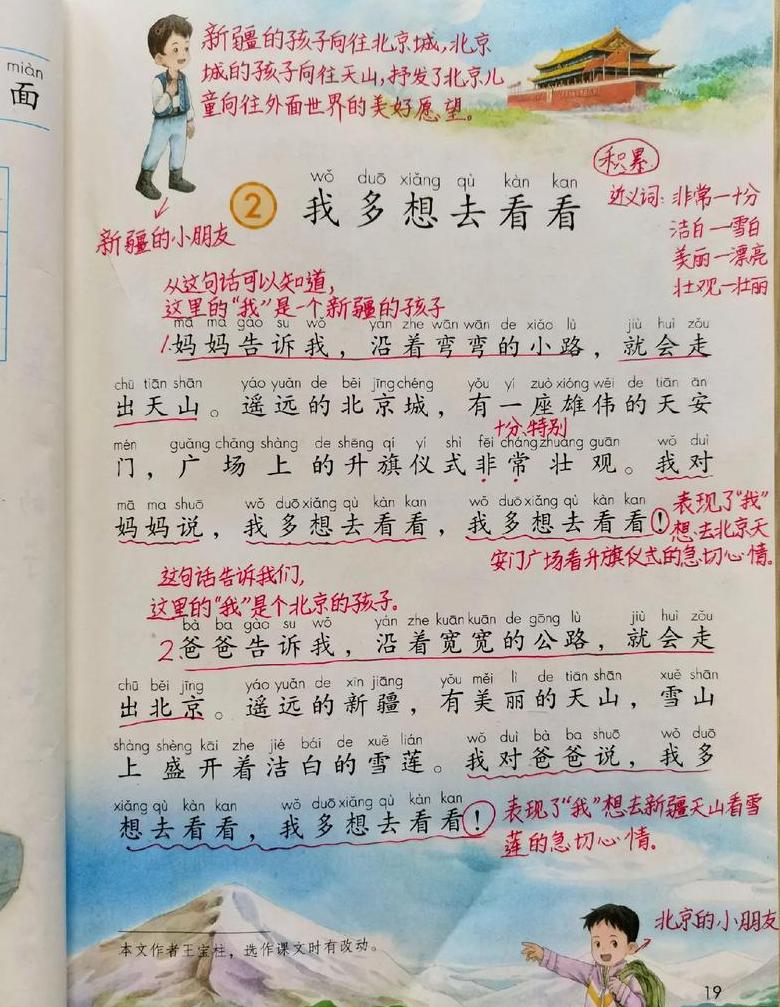 miàn
面
新疆的孩子向往北京城,北京
城的孩子向往天山,抒发了北京儿
童向往外面世界的美好愿望。
积累
wǒ duō xiǎng qù kàn kan
② 我多想去看看
近义词: 非常—十分
洁白—雪白
美丽—漂亮
壮观—壮丽
新疆的小朋友
从这句话可以知道,
这里的"我"是一个新疆的孩子
mā ma gào su wǒ yán zhe wān wān de xiǎo lù jiù huì zǒu
1.妈妈告诉我，沿着弯弯的小路，就会走
chū tiān shān yáo yuǎn de běi jīng chéng yǒu yí zuò xióng wěi de tiān ān
出天山。遥远的北京城，有一座雄伟的天安
十分、特别
mén guǎng chǎng shàng de shēng qí yí shì fēi cháng zhuàng guān wǒ duì
门，广场上的升旗仪式非常壮观。我对
mā ma shuō wǒ duō xiǎng qù kàn kan wǒ duō xiǎng qù kàn kan
妈妈说，我多想去看看，我多想去看看！
表现了"我"
想去北京天
安门广场看升旗仪式的急切心情。
这句话告诉我们,
这里的"我"是个北京的孩子。
bà ba gào su wǒ yán zhe kuān kuān de gōng lù jiù huì zǒu
2.爸爸告诉我，沿着宽宽的公路，就会走
chū běi jīng yáo yuǎn de xīn jiāng yǒu měi lì de tiān shān xuě shān
出北京。遥远的新疆，有美丽的天山，雪山
shàng shèng kāi zhe jié bái de xuě lián wǒ duì bà ba shuō wǒ duō
上盛开着洁白的雪莲。我对爸爸说，我多
xiǎng qù kàn kan wǒ duō xiǎng qù kàn kan
想去看看，我多想去看看！
表现了"我"想去新疆天山看雪
莲的急切心情。
北京的小朋友
本文作者王宝柱，选作课文时有改动。
19